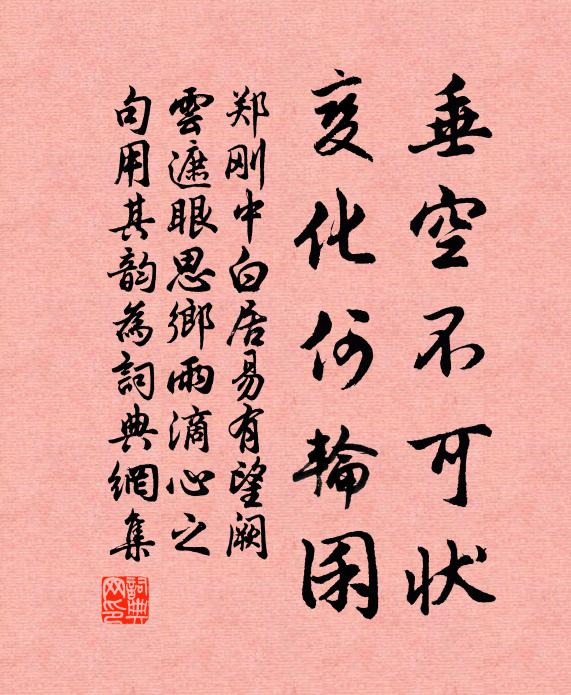 垂空不可状
变化何輪囷
郑刚中白居易有望阙
雲遮眼思鄉雨滴心之
句用其韵為詞典網集
詞典网印